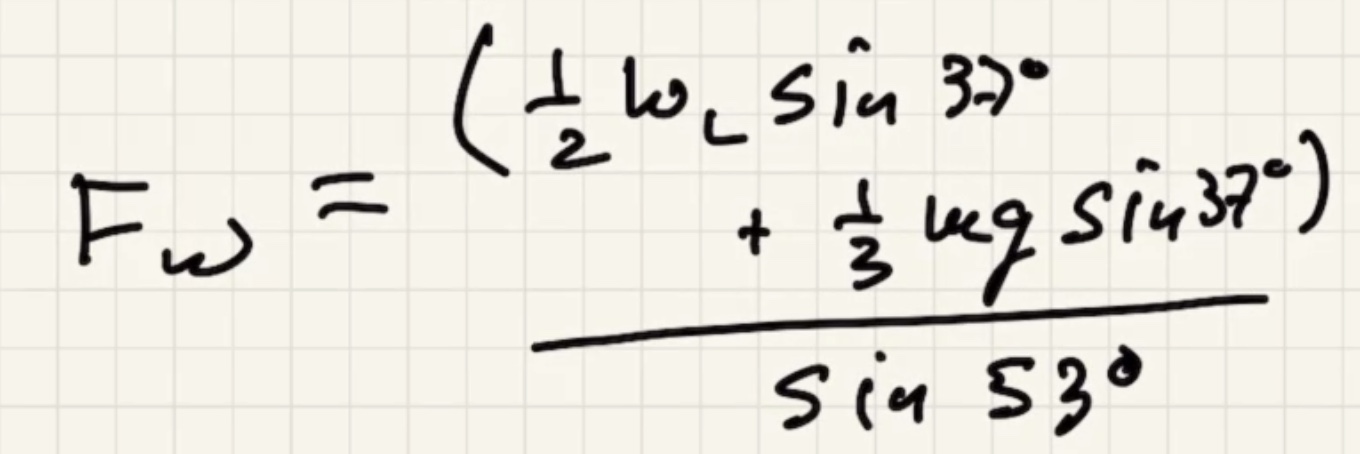 F_w = (1/2 w_L sin 37°
+ 1/3 mg sin 37°)
sin 53°